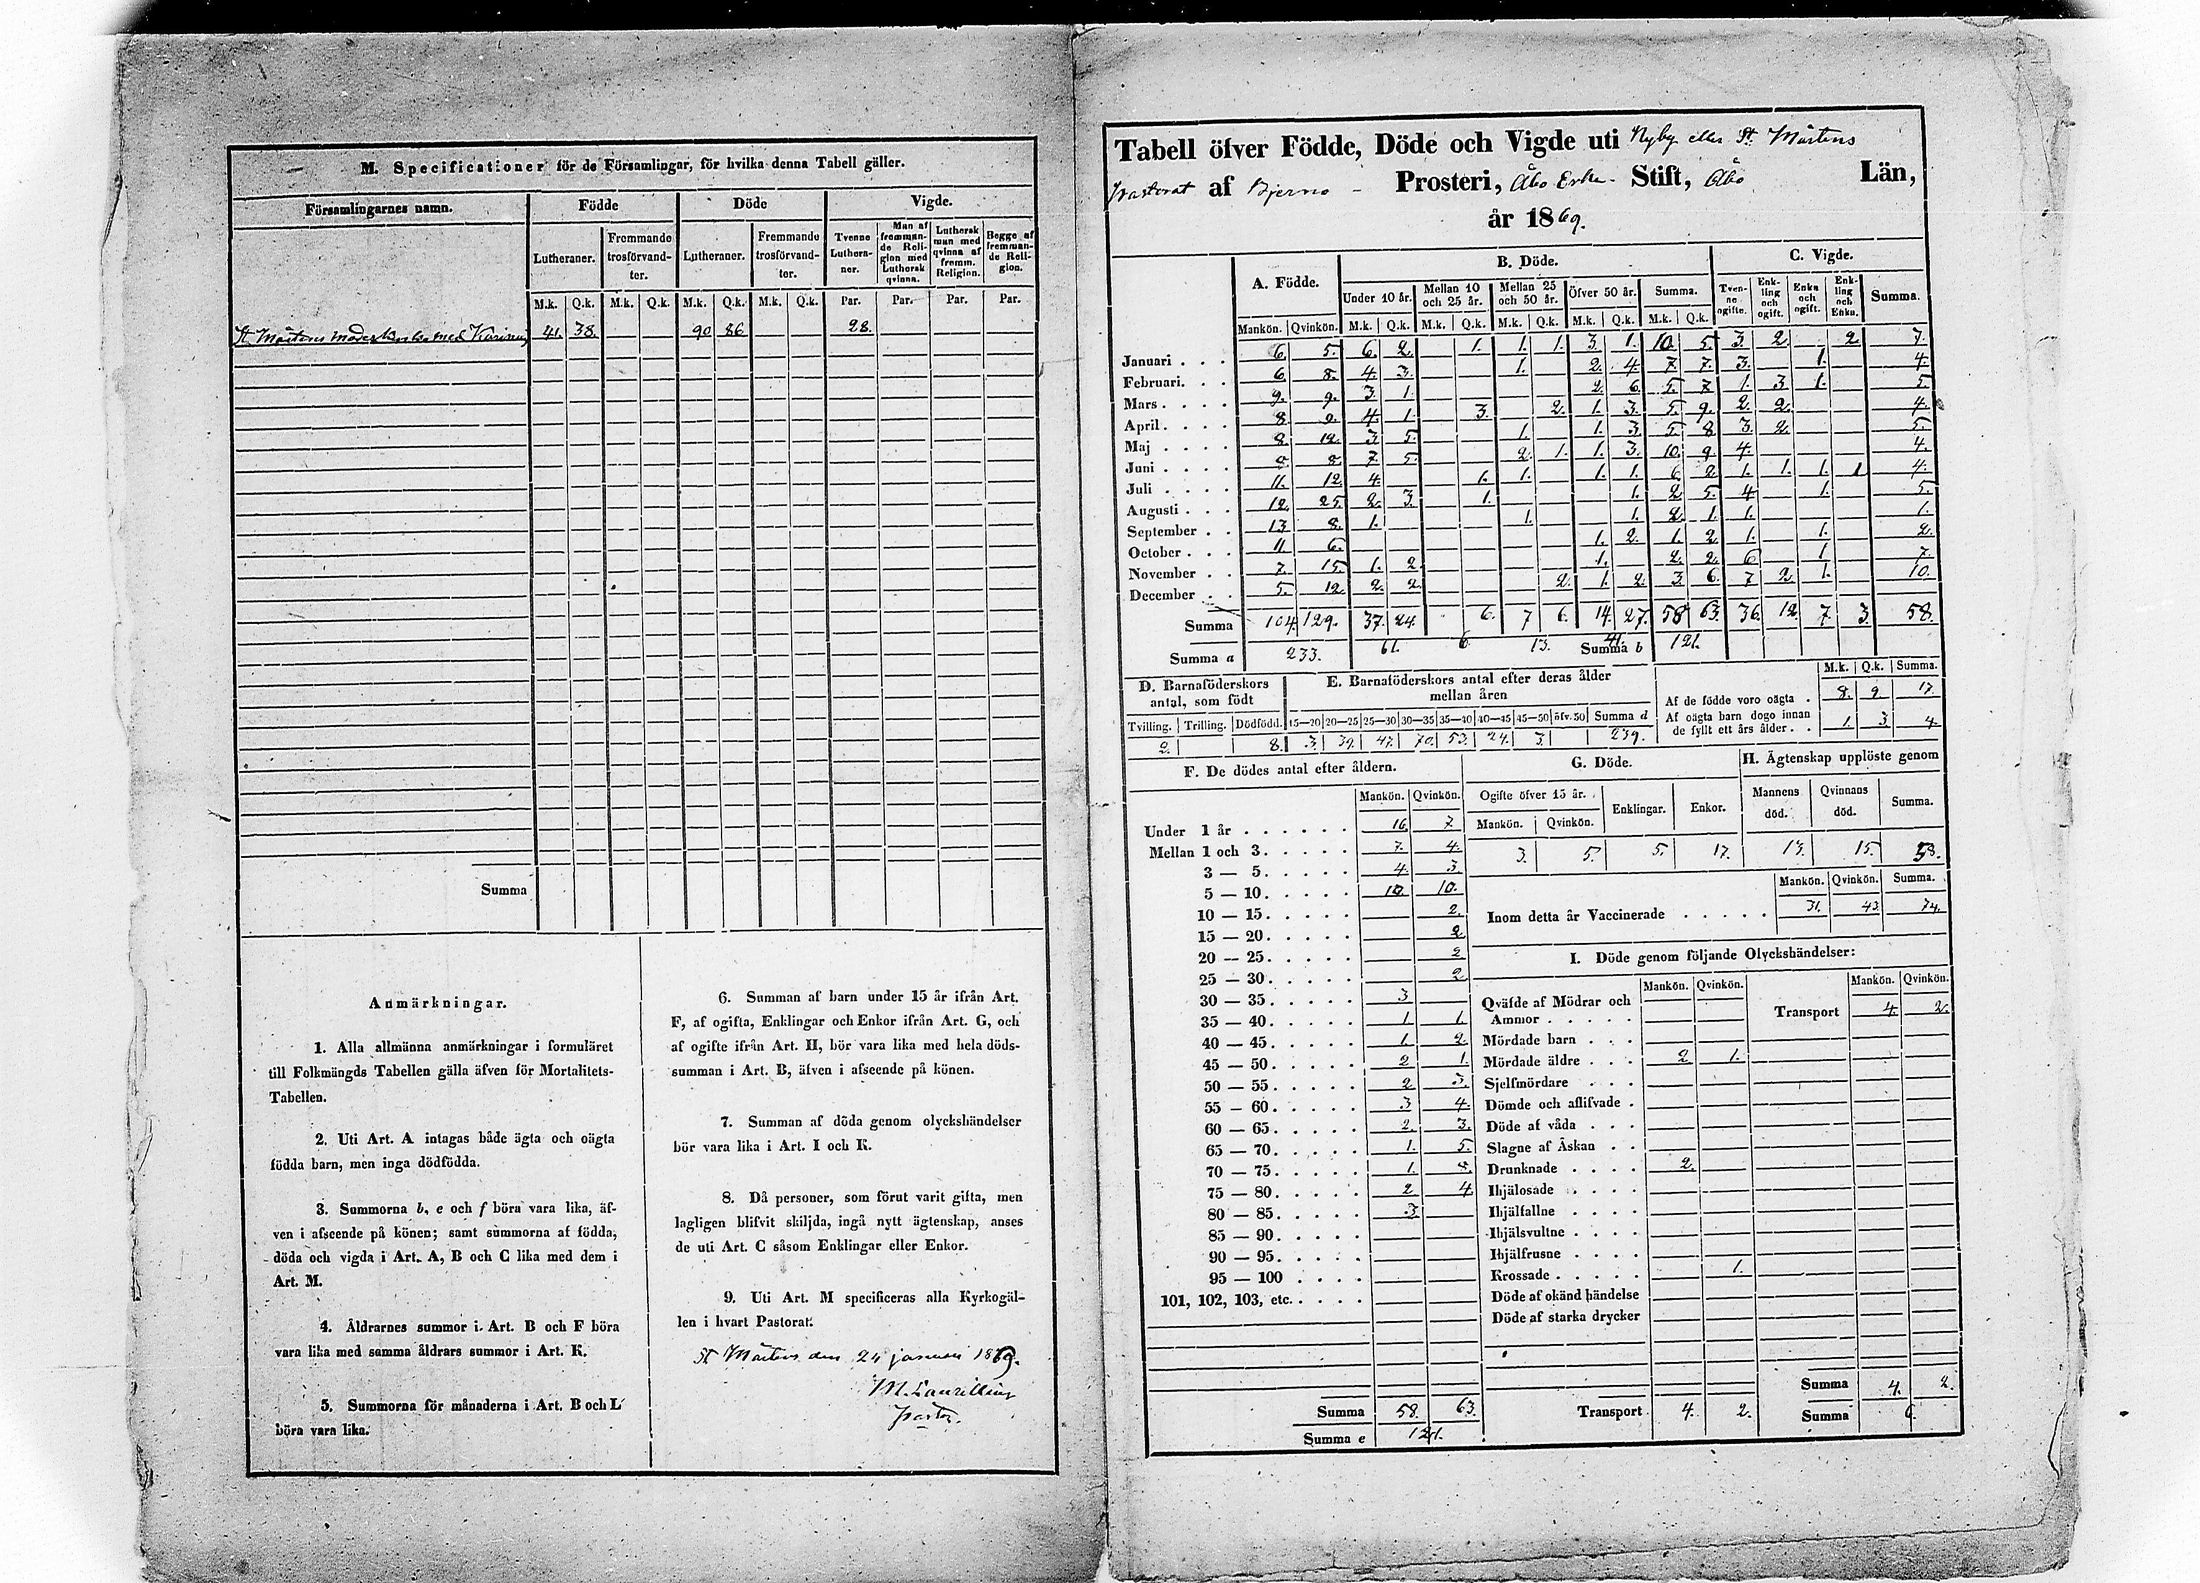 M. Specificationer för de Församlingar, för hvilka denna Tabell gäller.
Församlingarnes namn. Födde Döde Vigde.
Lutheraner. Fremmande trosförvandter. Lutheraner. Fremmande trosförvandter. Tvenne Lutheraner. Man af fremmande Religion med Luthersk qvinna. Luthersk man med qvinna af fremm. Religion. Begge af fremmande Religion.
M.k. Q.k. M.k. Q.k. M.k. Q.k. M.k. Q.k. Par. Par. Par. Par.
St Mårtens moderkyrka med 41. 38. 90 86 28.
Summa
Anmärkningar.
1. Alla allmänna anmärkningar i formuläret
till Folkmängds Tabellen gälla äfven för Mortalitets-
Tabellen.
2. Uti Art. A intagas både ägta och oägta
födda barn, men inga dödfödda.
3. Summorna b, e och f böra vara lika, äf-
ven i afseende på könen; samt summorna af födda,
döda och vigda i Art. A, B och C lika med dem i
Art. M.
4. Åldrarnes summor i Art. B och F böra
vara lika med samma åldrars summor i Art. K.
5. Summorna för månaderna i Art. B och L
böra vara lika.
6. Summan af barn under 15 år ifrån Art.
F, af ogifta, Enklingar och Enkor ifrån Art. G, och
af ogifte ifrån Art. H, bör vara lika med hela döds-
summan i Art. B, äfven i afseende på könen.
7. Summan af döda genom olyckshändelser
bör vara lika i Art. I och K.
8. Då personer, som förut varit gifta, men
lagligen blifvit skiljda, ingå nytt ägtenskap, anses
de uti Art. C såsom Enklingar eller Enkor.
9. Uti Art. M specificeras alla Kyrkogäl-
len i hvart Pastorat.
St Mårtens den 24 januari 1869.
M. Laurellius
pastor.
Tabell öfver Födde, Döde och Vigde uti Nyby eller St. Mårtens
pastorat af Bjerno Prosteri, Åbo Erke- Stift, Åbo Län,
år 1869.
A. Födde. B. Döde. C. Vigde.
Under 10 år. Mellan 10 och 25 år. Mellan 25 och 50 år. Öfver 50 år. Summa. Tvenne ogifte. Enkling och ogift. Enka och ogift. Enkling och Enka. Summa.
Mankön. Qvinkön. M.k. Q.k. M.k. Q.k. M.k. Q.k. M.k. Q.k. M.k. Q.k.
Januari 6. 5. 6. 2. 1. 1. 1. 3. 1. 10. 5. 3. 2. 2. 7.
Februari. 6. 8. 4. 3. 1. 2. 4. 7. 7. 3. 1. 4.
Mars 9. 9. 3. 1. 2. 6. 5. 7 1. 3 1. 5.
April. 8 9. 4. 1. 3. 2. 1. 3. 5. 9. 2. 2. 4.
Maj 8. 12. 3. 5. 1. 1. 3. 5. 8. 3. 2. 5.
Juni 8. 8. 7. 5. 2. 1. 1. 3. 10. 9. 4. 4.
Juli 11. 12. 4. 1. 1. 1. 1. 6. 2. 1. 1. 1. 1 4.
Augusti 12. 25. 2. 3. 1. 1. 2. 5. 4 1. 5.
September 13 8. 1. 1. 1. 2. 1. 1. 1.
October 11. 6. 1. 2. 1. 2. 1. 1. 2.
November 7. 15. 1. 2. 1. 2. 2. 6. 1. 7.
December 5. 12. 2. 2. 2. 1. 2. 3. 6. 7 2. 1. 10.
Summa 104. 129. 37. 24. 6. 7 6. 14. 27. 58 63. 36. 12. 7. 3. 58.
Summa a 233. 61. 6 13. 41. Summa b 121.
D. Barnaföderskors antal, som födt
E. Barnaföderskors antal efter deras ålder mellan åren
M.k. Q.k. Summa.
Af de födde voro oägta 8. 9 17.
Af oägta barn dogo innan de fyllt ett års ålder 1. 3. 4.
Tvilling. Trilling. Dödfödd. 15—20 20—25 25—30 30—35 35—40 40—45 45—50 öfv. 50 Summa d
2. 8. 3. 39. 47. 70. 53. 24. 3. 239.
F. De dödes antal efter åldern.
Mankön. Qvinkön.
Under 1 år 16. 7.
Mellan 1 och 3. 7. 4.
3 — 5. 4. 3.
5 — 10. 10. 10.
10 — 15. 2.
15 — 20. 2
20 — 25. 2
25 — 30. 2
30 — 35. 3
35 — 40. 1 1.
40 — 45. 1. 2.
45 — 50. 2 1.
50 — 55. 2 3.
55 — 60. 3 4.
60 — 65. 2. 3.
65 — 70. 1. 5.
70 — 75. 1. 8.
75 — 80. 2 4
80 — 85. 3.
85 — 90.
90 — 95.
95 — 100
101, 102, 103, etc.
Summa 58. 63.
Summa e 121.
G. Döde.
Ogifte öfver 15 år. Enklingar. Enkor.
Mankön. Qvinkön.
3. 5. 5. 17.
H. Ägtenskap upplöste genom
Mannens död. Qvinnans död. Summa.
13. 15. 28.
Mankön. Qvinkön. Summa.
Inom detta år Vaccinerade 31. 43. 74.
I. Döde genom följande Olyckshändelser:
Mankön. Qvinkön. Mankön. Qvinkön.
Qväfde af Mödrar och
Ammor
Transport 4. 2.
Mördade barn
Mördade äldre 2 1.
Sjelfmördare
Dömde och aflifvade
Döde af våda
Slagne af Åskan
Drunknade 2.
Ihjälosade
Ihjälfallne
Ihjälsvultne
Ihjälfrusne
Krossade 1.
Döde af okänd händelse
Döde af starka drycker
Summa 4. 2.
Transport 4. 2. Summa 6.